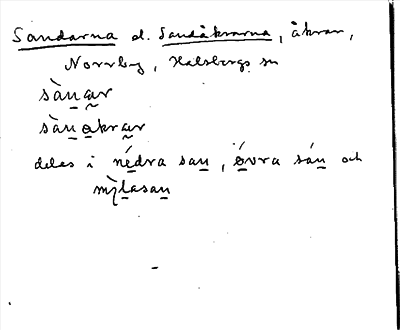 Sandarna el. Sandåkrarna, åkrar,
Norrby, Hälsbergs sn
sàṉa̰r
sàṉa̱kra̰r
delas i né̱dra saṉ, ó̱vra sáṉ och
mỳḻasaṉ